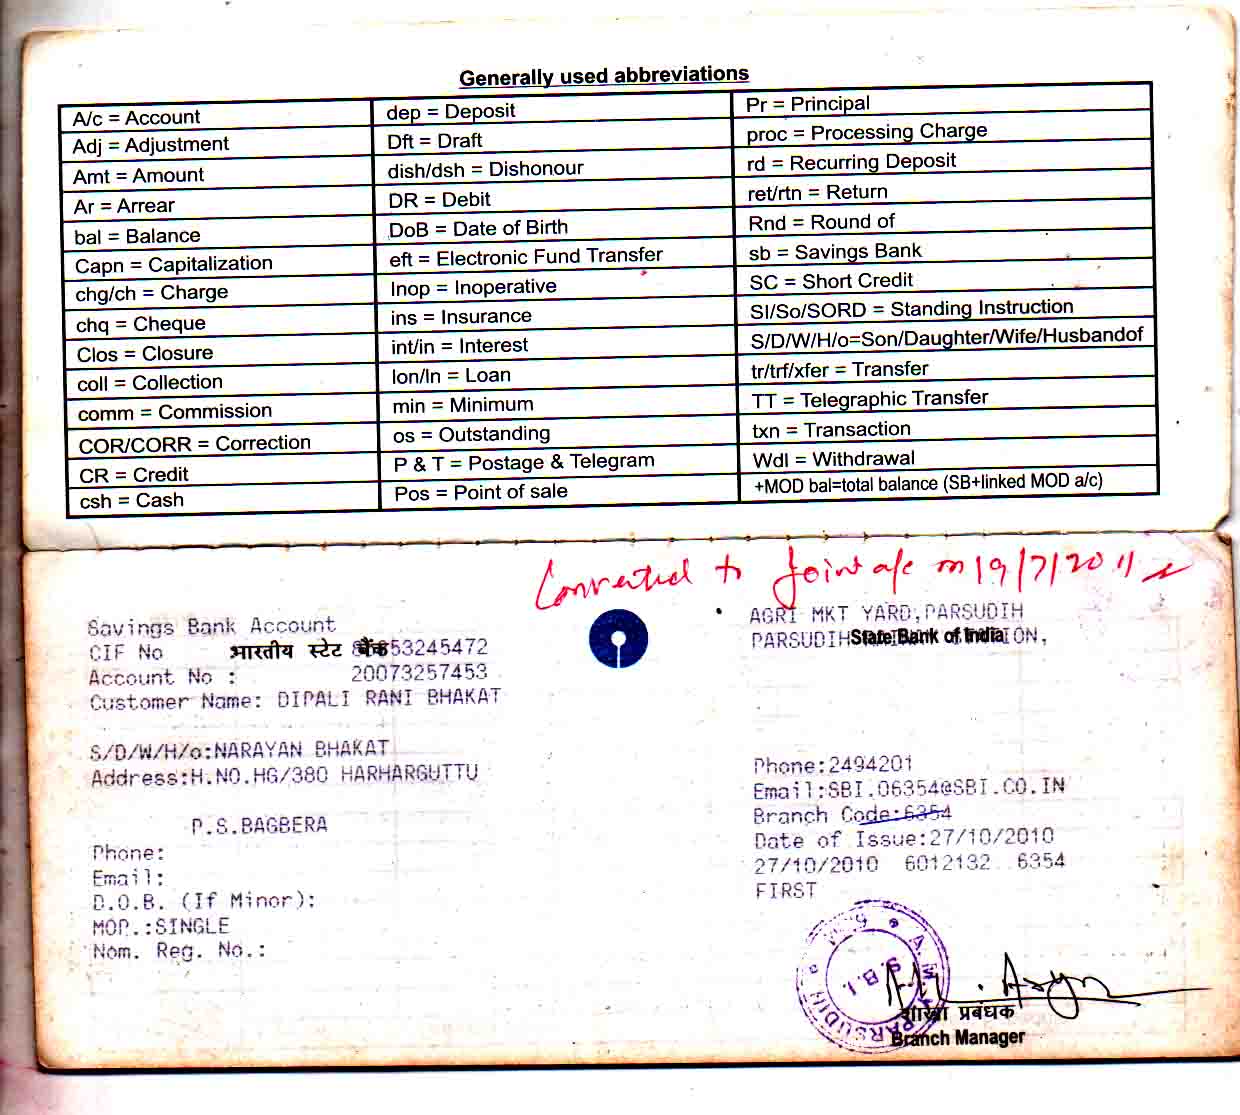 Generally used abbreviations
A/c = Account
Adj = Adjustment
Amt = Amount
Ar = Arrear
bal = Balance
Capn = Capitalization
chg/ch = Charge
chq = Cheque
Clos = Closure
coll = Collection
comm = Commission
COR/CORR = Correction
CR = Credit
csh = Cash
dep = Deposit
Dft = Draft
dish/dsh = Dishonour
DR = Debit
DoB = Date of Birth
eft = Electronic Fund Transfer
Inop = Inoperative
ins = Insurance
int/in = Interest
lon/ln = Loan
min = Minimum
os = Outstanding
P & T = Postage & Telegram
Pos = Point of sale
Pr = Principal
proc = Processing Charge
rd = Recurring Deposit
ret/rtn = Return
Rnd = Round of
sb = Savings Bank
SC = Short Credit
SI/So/SORD = Standing Instruction
S/D/W/H/o=Son/Daughter/Wife/Husbandof
tr/trf/xfer = Transfer
TT = Telegraphic Transfer
txn = Transaction
Wdl = Withdrawal
+MOD bal=total balance (SB+linked MOD a/c)
Converted to Joint a/c on 19/7/2011
Savings Bank Account
CIF No 53245472
भारतीय स्टेट बैंक
Account No : 20073257453
Customer Name: DIPALI RANI BHAKAT
S/D/W/H/o:NARAYAN BHAKAT
Address:H.NO.HG/380 HARHARGUTTU
P.S.BAGBERA
Phone:
Email:
D.O.B. (If Minor):
MOP.:SINGLE
Nom. Reg. No.:
AGRI MKT YARD,PARSUDIH
PARSUDIH
State Bank of India
Phone:2494201
Email:SBI.06354@SBI.CO.IN
Branch Code:6354
Date of Issue:27/10/2010
27/10/2010 6012132 6354
FIRST
S.B.I.
PARSUDIH
शाखा प्रबंधक
Branch Manager